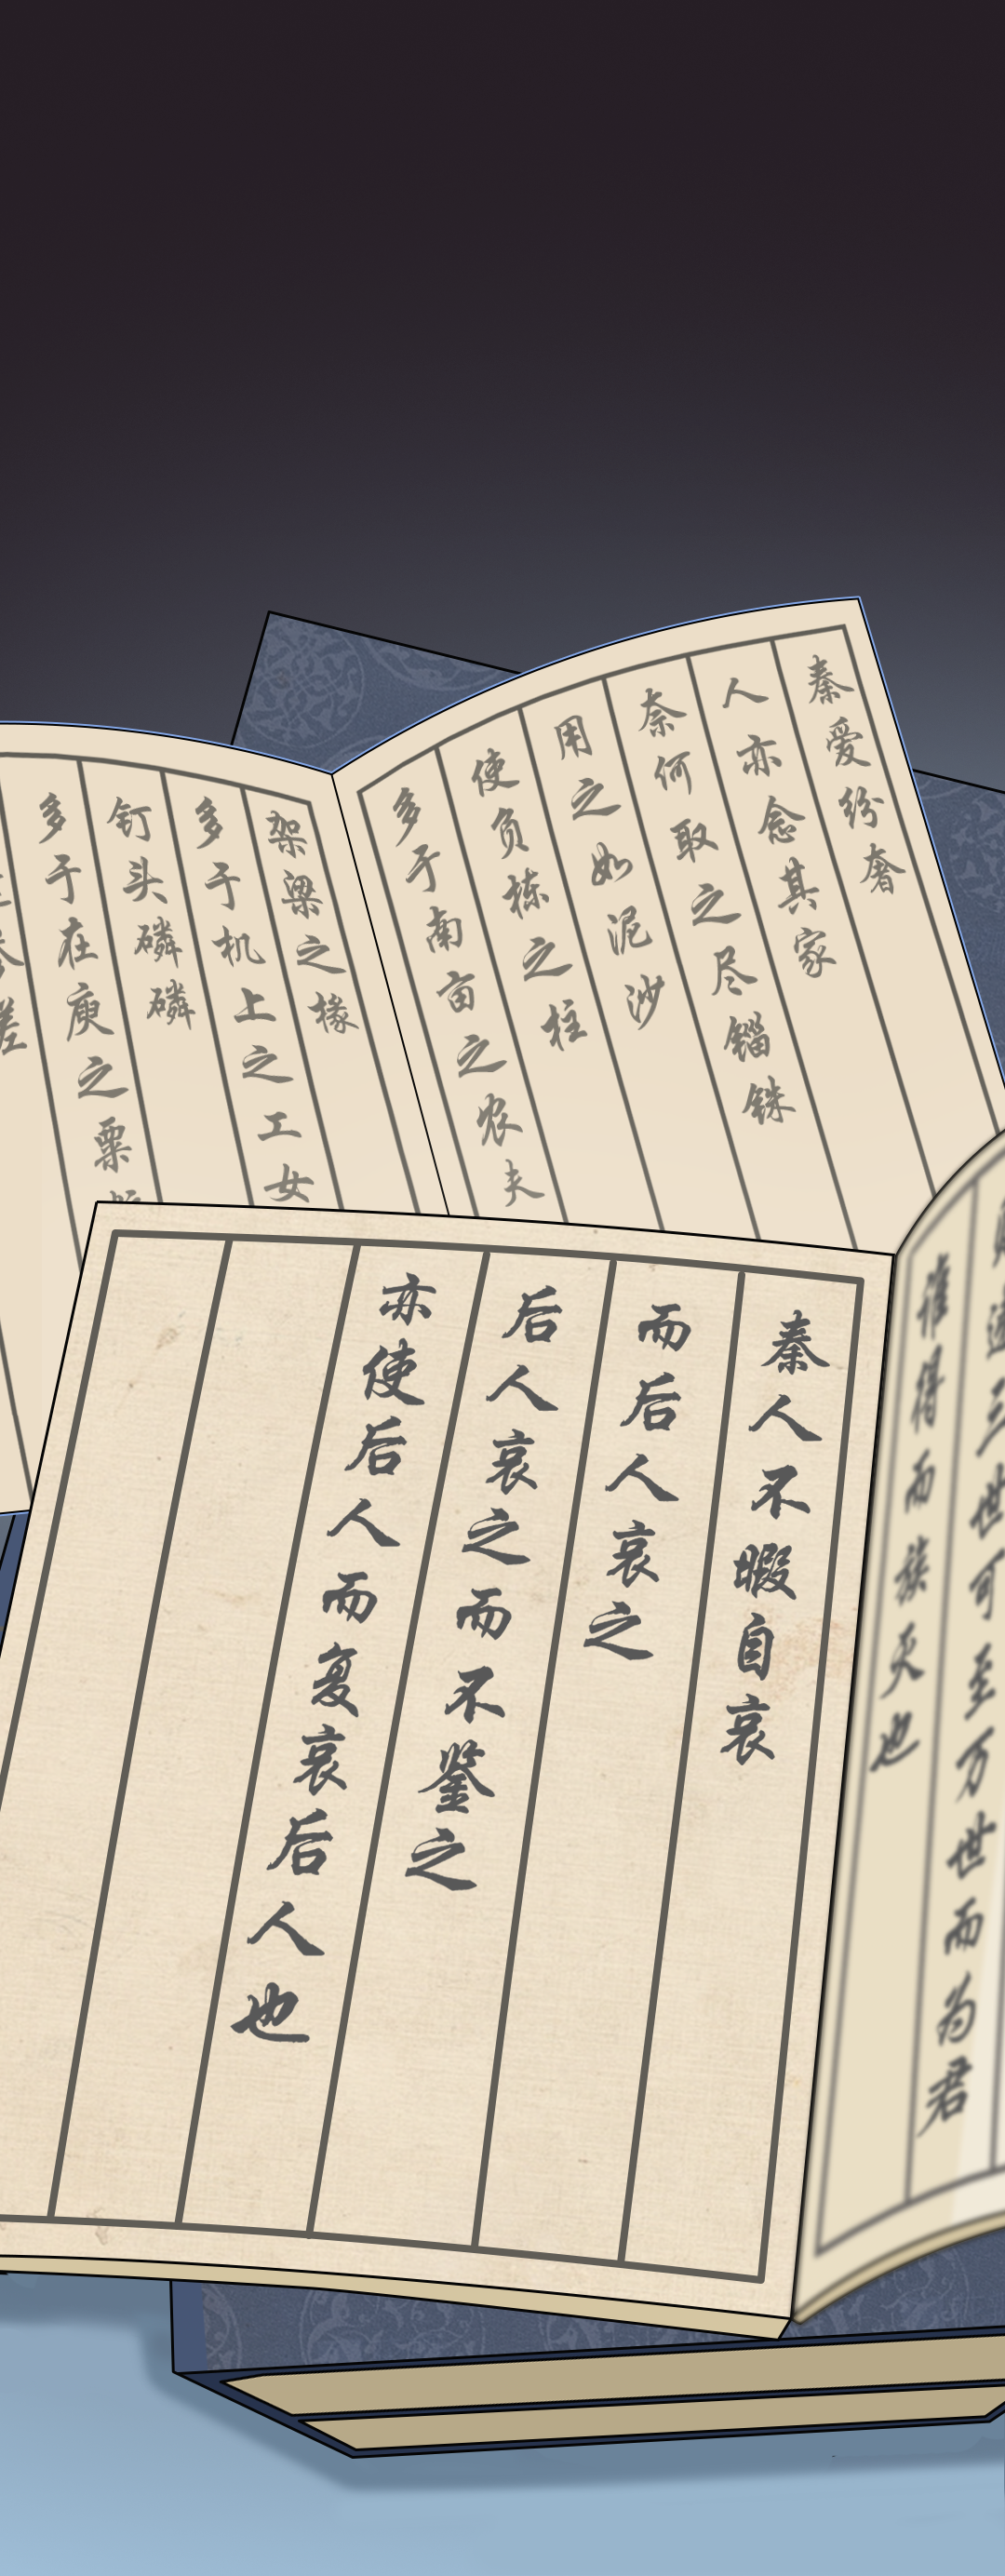 秦爱纷奢
人亦念其家
奈何取之尽锱铢
用之如泥沙
使负栋之柱
多于南亩之农夫
架梁之椽
多于机上之工女
钉头磷磷
多于在庾之粟粒
参差
递三世可至万世而为君
谁得而族灭也
秦人不暇自哀
而后人哀之
后人哀之而不鉴之
亦使后人而复哀后人也